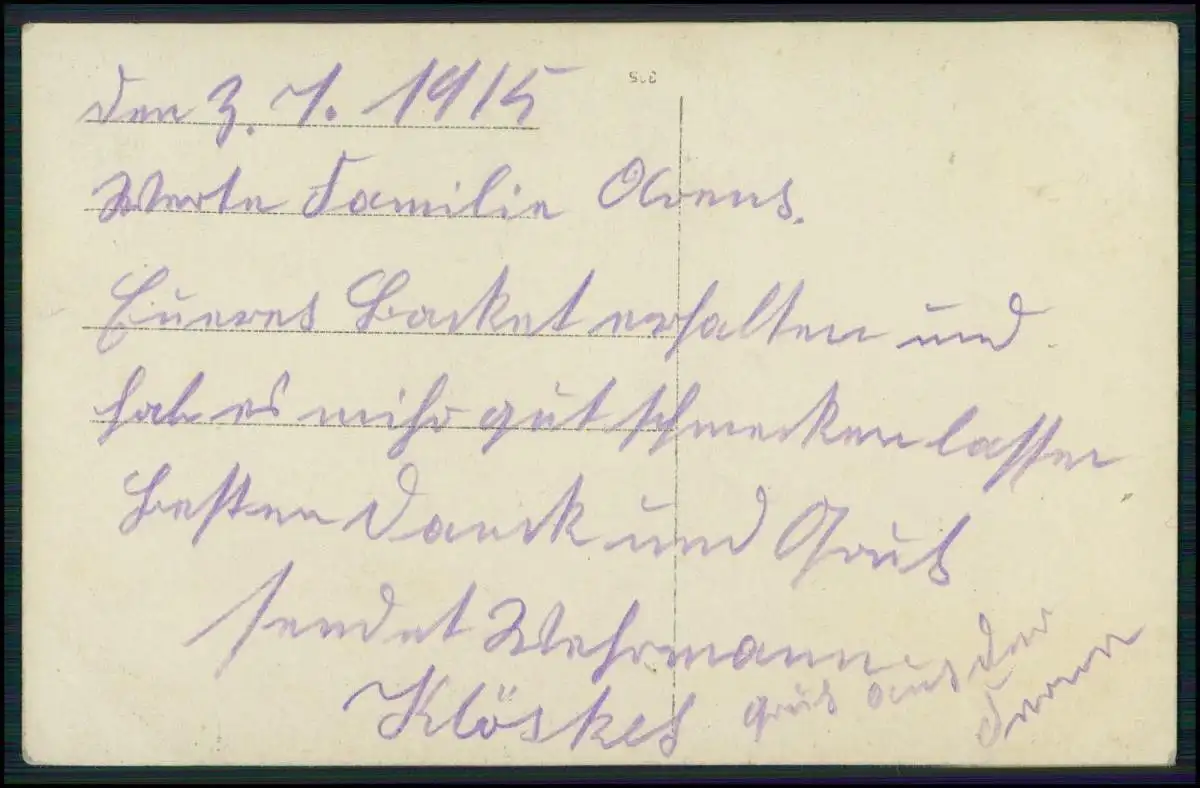 den 3. 7. 1915
Werte Familie Arens.
Eueres Backet erhalten und
hab es mihr gut schmecken lassen
Besten Danck und Gruß
sendet Wehrmann
Klöskes Gruß aus der
Ferne